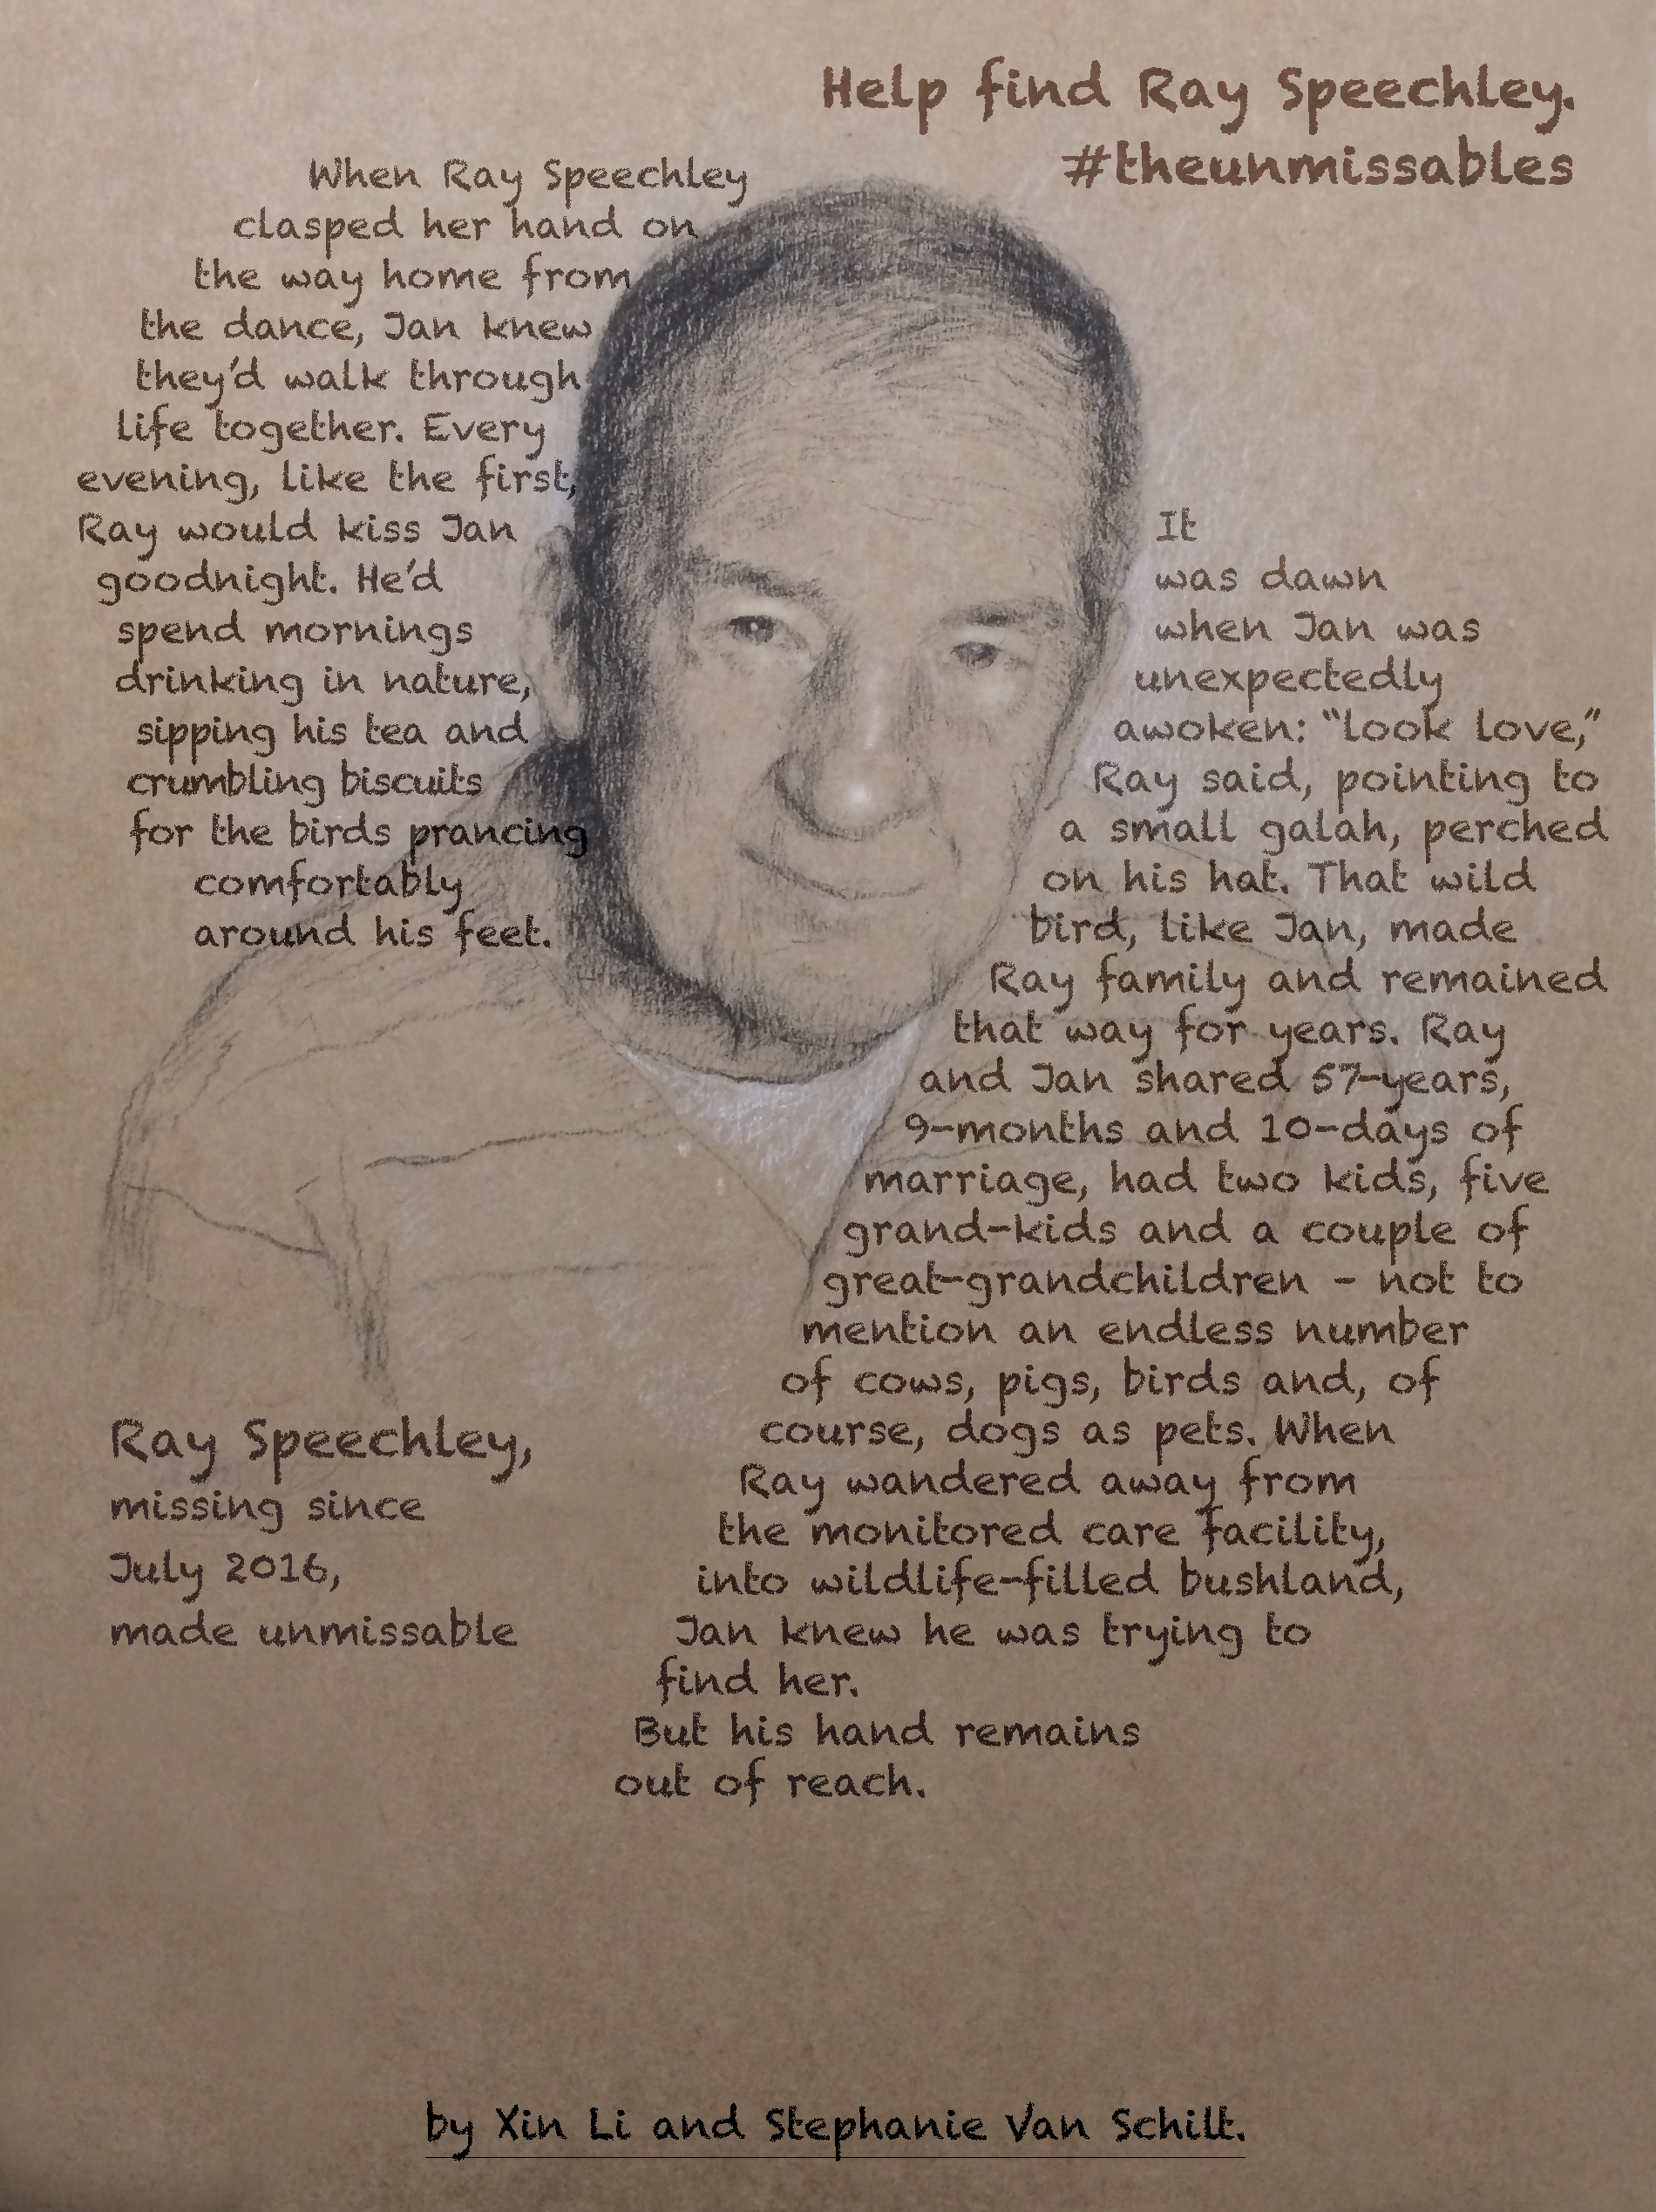 Help find Ray Speechley.
#theunmissables
When Ray Speechley
clasped her hand on
the way home from
the dance, Jan knew
they'd walk through
life together. Every
evening, like the first,
Ray would kiss Jan
goodnight. He'd
spend mornings
drinking in nature,
sipping his tea and
crumbling biscuits
for the birds prancing
comfortably
around his feet.
It
was dawn
when Jan was
unexpectedly
awoken: “look love,”
Ray said, pointing to
a small galah, perched
on his hat. That wild
bird, like Jan, made
Ray family and remained
that way for years. Ray
and Jan shared 57-years,
9-months and 10-days of
marriage, had two kids, five
grand-kids and a couple of
great-grandchildren - not to
mention an endless number
of cows, pigs, birds and, of
course, dogs as pets. When
Ray wandered away from
the monitored care facility,
into wildlife-filled bushland,
Jan knew he was trying to
find her.
But his hand remains
out of reach.
Ray Speechley,
missing since
July 2016,
made unmissable
by Xin Li and Stephanie Van Schilt.